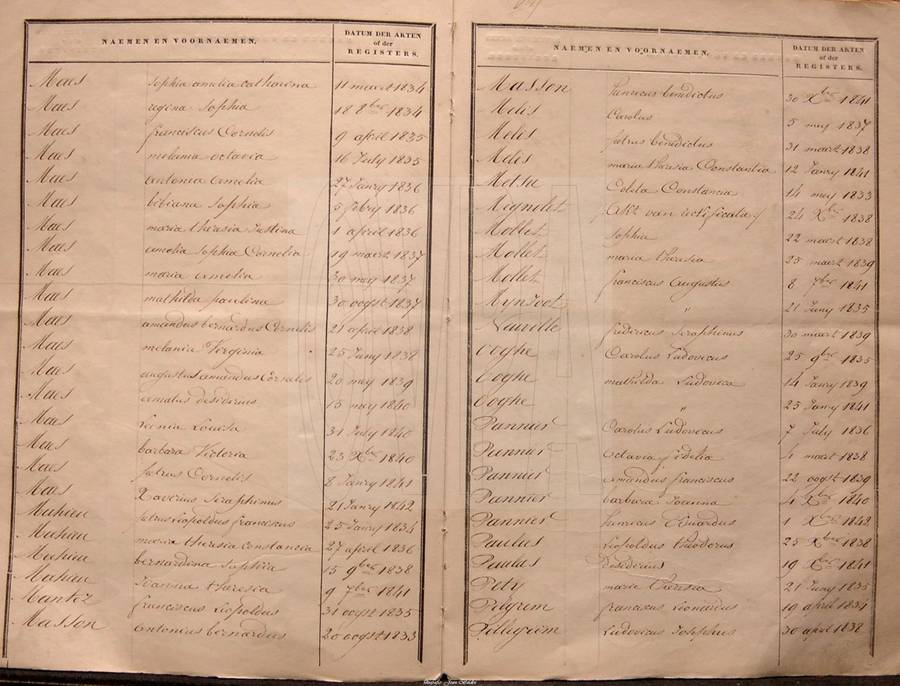 NAEMEN EN VOORNAEMEN.
DATUM DER AKTEN
of der
REGISTERS.
Maes sophia amelia catharina 11 maart 1834
Maes regina sophia 18 8bre 1834
Maes franciscus Cornelis 9 april 1835
Maes melania octavia 16 July 1835
Maes antonia amelia 27 Janry 1836
Maes bibiana sophia 5 febry 1836
Maes maria theresia Justina 1 april 1836
Maes amelia sophia Cornelia 19 maart 1837
Maes maria amelia 30 mey 1837
Maes mathilda paulina 30 oogst 1837
Maes amandus bernardus Cornelis 21 april 1838
Maes melania Virginia 25 Juny 1838
Maes augustus amandus Cornelis 20 mey 1839
Maes amatus desiderius 15 mey 1840
Maes Louisa 31 July 1840
Maes barbara Victoria 23 Xbre 1840
Maes petrus Cornelis 8 Janry 1841
Maes Xaverius Seraphinus 21 Janry 1842
Mahieu petrus leopoldus franciscus 25 Janry 1834
Mahieu maria theresia constancia 27 april 1836
Mahieu bernardina sophia 15 9bre 1838
Mahieu Joanna theresia 9 7bre 1841
Mantez franciscus leopoldus 31 oogst 1835
Masson antonius bernardus 20 oogst 1833
NAEMEN EN VOORNAEMEN.
DATUM DER AKTEN
of der
REGISTERS.
Masson henricus benedictus 30 Xbre 1841
Melis Carolus 5 mey 1837
Melis petrus benedictus 31 maart 1838
Melis maria theresia Constantia 12 Janry 1841
Metsu Colita Constancia 14 mey 1833
Mignolet (Akt van rectificatie) 24 Xbre 1838
Mollet sophia 22 maart 1838
Mollet maria theresia 25 maart 1839
Mollet franciscus augustus 8 7bre 1841
" 21 Juny 1835
Neuville fredericus Seraphinus 30 maart 1839
Ooghe Carolus Ludovicus 25 9bre 1835
Ooghe mathilda Ludovica 14 Janry 1839
Ooghe " 25 Janry 1841
Pannier Carolus Ludovicus 7 July 1836
Pannier octavia fidelia 4 maart 1838
Pannier amandus franciscus 22 oogst 1839
Pannier barbara Joanna 4 Xbre 1840
Pannier henricus Eduardus 1 Xbre 1842
Paulus leopoldus theodorus 25 Xbre 1838
Paulus Desiderius 19 Xbre 1841
Petz maria theresia 21 Juny 1835
Pelgrim franciscus leonardus 19 april 1834
Pellegrim Ludovicus Josephus 30 april 1838